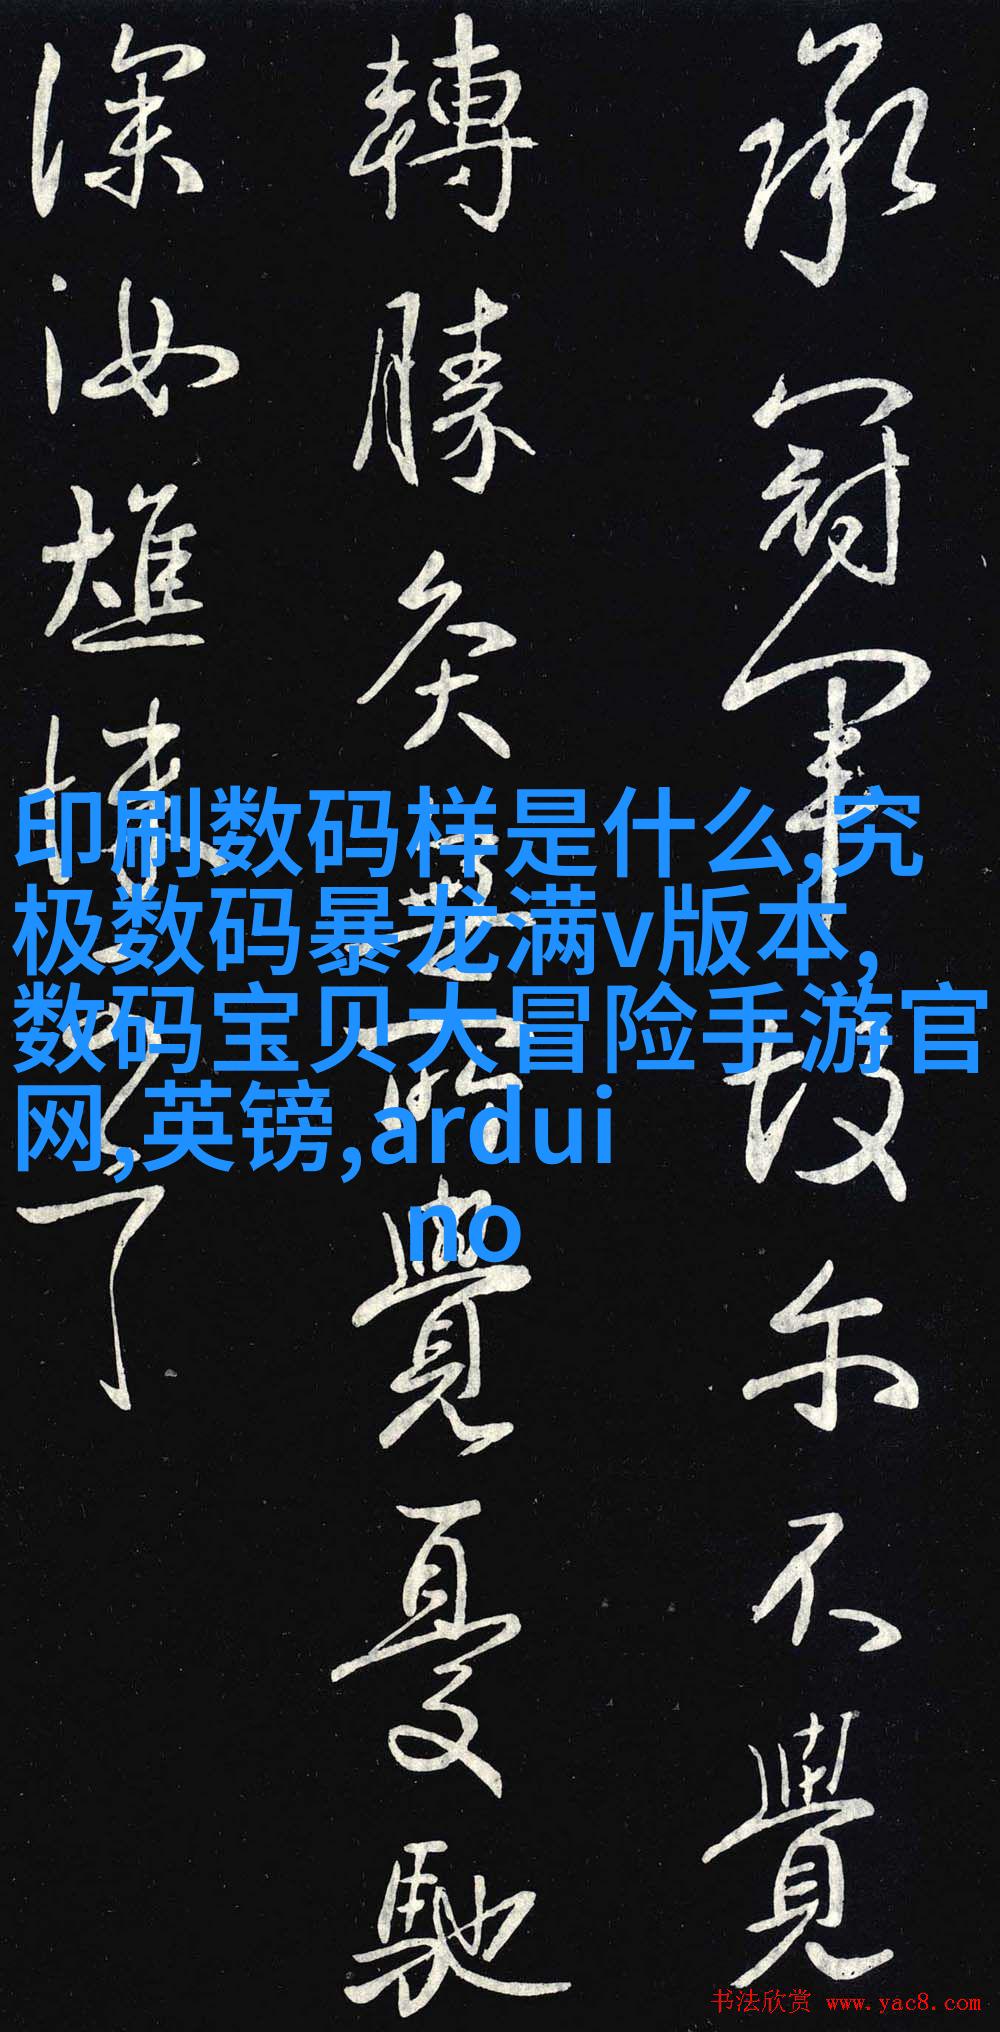 承冠軍故尒不覺
轉勝灸無所覺憂馳
深汝燋悚
印刷数码样是什么,究
极数码暴龙满v版本,
数码宝贝大冒险手游官
网,英镑,ardui
no
书法欣赏 www.yac8.com